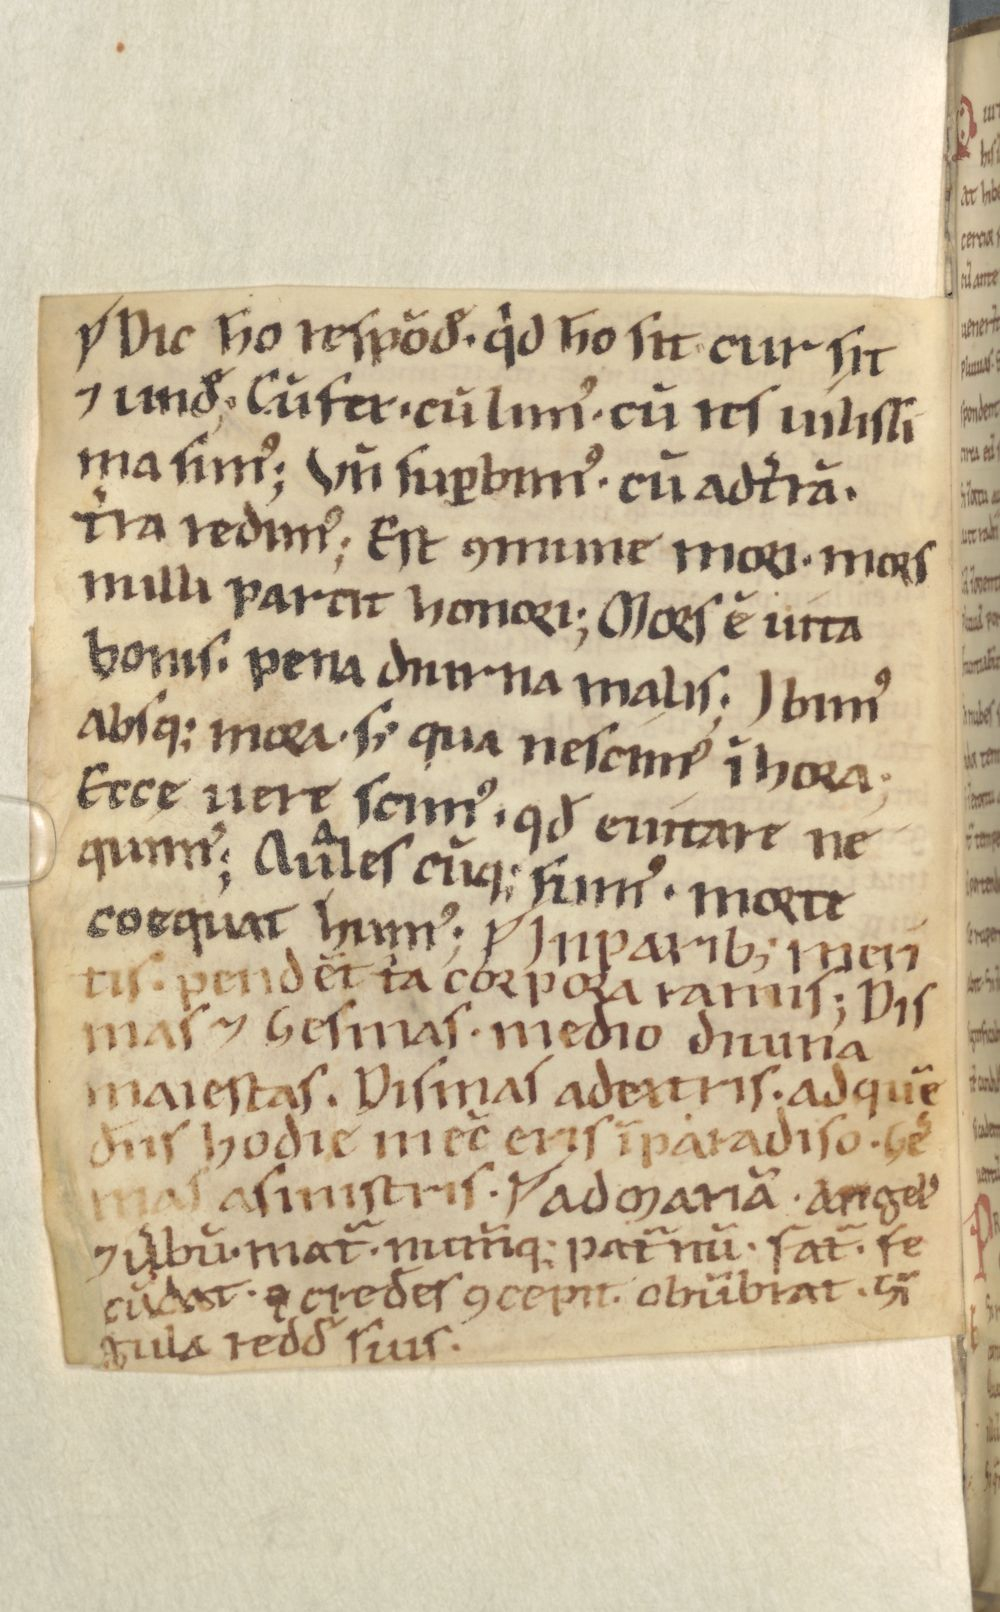 Dic ho respōd̄. qͥd ho sit cur sit
⁊ und̄; Cū fex. cū limꝰ. cū res uilissi
ma simꝰ; Vn̄ suꝑbimꝰ. cū ad t̄rā.
t̄ra redimꝰ; Est ꝯmune mori. mors
nulli parcit honori; Mors ē uita
bonis. pena diurna malis; Ibimꝰ
absq; mora. s; qua nescimꝰ ī hora;
Ecce uere scimꝰ. qd̄ euitare ne
quimꝰ; Aules cūq; simꝰ. morte
coequat humꝰ; Inparib; meri
tis. pendēt tͥa corpora ramis; Dis
mas ⁊ Gesmas. medio diuina
maiestas. Dismas a dextris. ad quē
dn̄s hodie mec̄ eris ī paradiso. Ge
mas a sinistris. ad Mariā. Angelꝰ
⁊ ūbū. mat̄. numq; pat̄nū. sat̄.
cūdat. credēs ꝯcepit. obūbrat.
redd̄ suis.